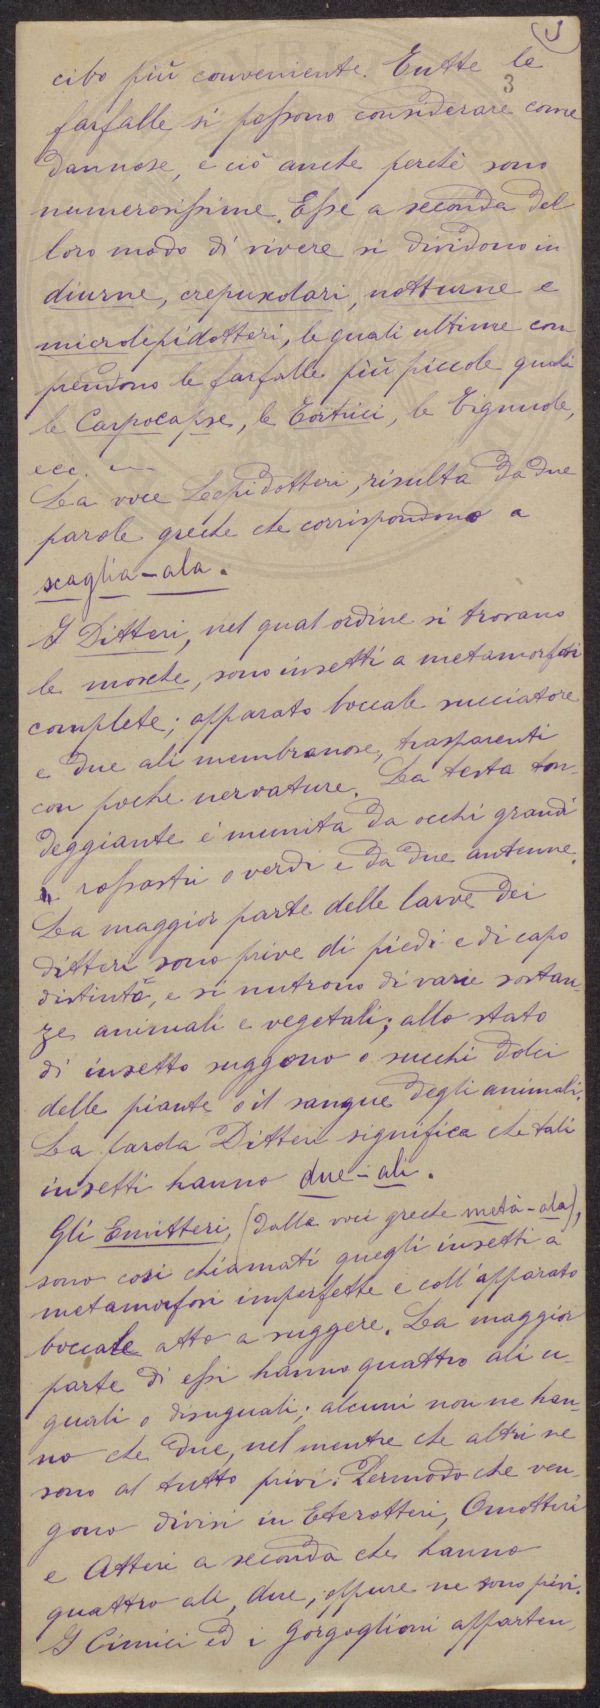 3
cibo più conveniente. Tutte le
farfalle si possono considerare come
dannose, e ciò anche perchè sono
numerosissime. Esse a seconda del
loro modo di vivere si dividono in
diurne, crepuscolari, notturne e
microlepidotteri, le quali ultime com
prendono le farfalle più piccole quali
le Carpocapse, le Tortrici, le Tignuole,
ecc. —
La voce Lepidotteri, risulta da due
parole greche che corrispondono a
scaglia-ala.
I Ditteri, nel qual ordine si trovano
le mosche, sono insetti a metamorfosi
complete; apparato boccale succiatore
e due ali membranose, trasparenti
con poche nervature. La testa ton-
deggiante è munita da occhi grandi
rossastri o verdi e da due antenne.
La maggior parte delle larve dei
ditteri sono prive di piedi e di capo
distinto, e si nutrono di varie sostan-
ze animali e vegetali; allo stato
di insetto suggono o succhi dolci
delle piante o il sangue degli animali.
La parola Ditteri significa che tali
insetti hanno due-ali.
Gli Emitteri, (dalle voci greche metà-ala),
sono così chiamati quegli insetti a
metamorfosi imperfette e coll'apparato
boccale atto a suggere. La maggior
parte di essi hanno quattro ali u-
guali o disuguali; alcuni non ne han-
no che due, nel mentre che altri ne
sono al tutto privi. Permodochè ven-
gono divisi in Eterotteri, Omotteri
e Atteri a seconda che hanno
quattro ali, due, oppure ne sono privi.
I Cimici ed i Gorgoglioni apparten